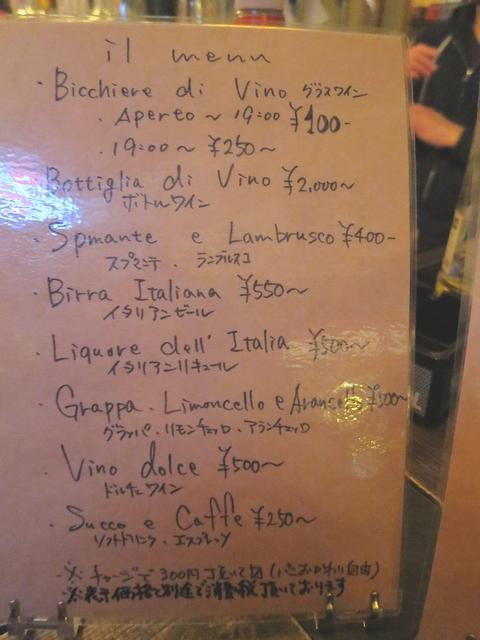 il menu
・Bicchiere di Vino グラスワイン
・Aperto ~ 19:00 ¥100-
・19:00~ ¥250~
Bottiglia di Vino ¥2,000~
ボトルワイン
・Spmante e Lambrusco ¥400-
スプマンテ ・ ランブルスコ
・Birra Italiana ¥550~
イタリアンビール
・Liquore dell' Italia ¥500~
イタリアンリキュール
・Grappa . Limoncello e Arancello ¥500~
グラッパ ・ リモンチェッロ ・ アランチェッロ
・Vino dolce ¥500~
ドルチェワイン
・Succo e Caffe ¥250~
ソフトドリンク ・ エスプレッソ
※ チャージで300円頂いて(パンおかわり自由)
※表示価格と別途で消費税頂いております